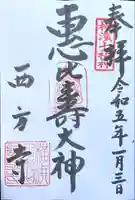 奉拝
令和五年一月三日
恵比寿大神
西方寺